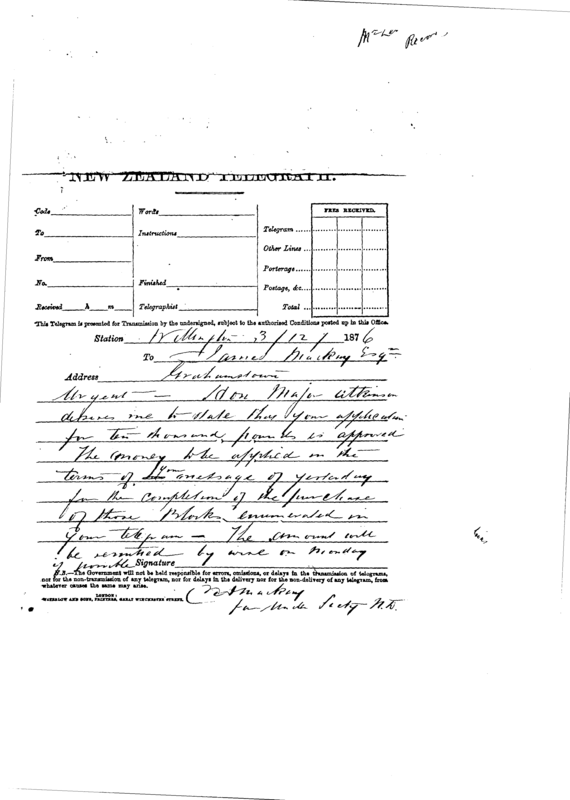 NEW ZEALAND TELEGRAPH.
Code Words FEES RECEIVED.
To Instructions Telegram ...
From Other Lines ...
Porterage ...
No. Finished Postage, &c...
Received h m Telegraphist Total ...
This Telegram is presented for Transmission by the undersigned, subject to the authorized Conditions posted up in this Office.
Station Wellington 3/12/1876
To James Mackay Esqre
Address Grahamstown
Urgent — Hon Major Atkinson
desires me to state that your application
for ten thousand pounds is approved
The money to be applied in the
terms of your message of yesterday
for the completion of the purchase
of those Blocks enumerated in
your telegram — The amount will
be remitted by wire on Monday
if possible Signature
N.B.—The Government will not be held responsible for errors, omissions, or delays in the transmission of telegrams,
nor for the non-transmission of any telegram, nor for delays in the delivery nor for the non-delivery of any telegram, from
whatever causes the same may arise.
LONDON:
WATERLOW AND SONS, PRINTERS, GREAT WINCHESTER STREET.
Mackay
for Under Secty N.D.